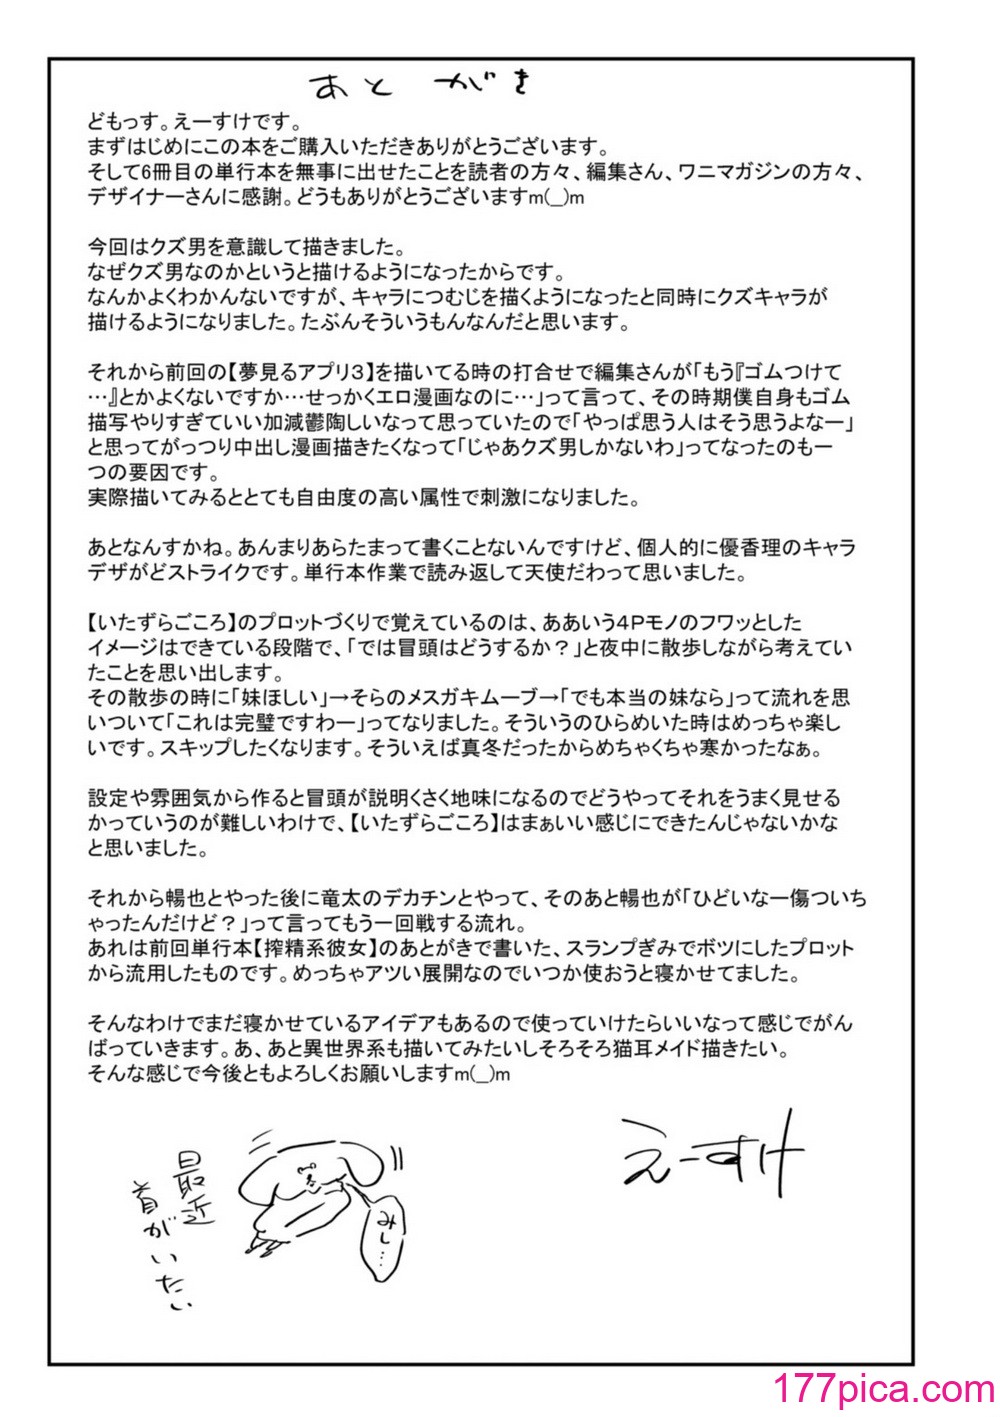 あとがき
どもっす。えーすけです。
まずはじめにこの本をご購入いただきありがとうございます。
そして6冊目の単行本を無事に出せたことを読者の方々、編集さん、ワニマガジンの方々、
デザイナーさんに感謝。どうもありがとうございますm(_)m
今回はクズ男を意識して描きました。
なぜクズ男なのかというと描けるようになったからです。
なんかよくわかんないですが、キャラにつむじを描くようになったと同時にクズキャラが
描けるようになりました。たぶんそういうもんなんだと思います。
それから前回の【夢見るアプリ3】を描いてる時の打合せで編集さんが「もう『ゴムつけて
…』とかよくないですか…せっかくエロ漫画なのに…」って言って、その時期僕自身もゴム
描写やりすぎていい加減鬱陶しいなって思っていたので「やっぱ思う人はそう思うよなー」
と思ってがっつり中出し漫画描きたくなって「じゃあクズ男しかないわ」ってなったのも一
つの要因です。
実際描いてみるととても自由度の高い属性で刺激になりました。
あとなんすかね。あんまりあらたまって書くことないんですけど、個人的に優香理のキャラ
デザがどストライクです。単行本作業で読み返して天使だわって思いました。
【いたずらごころ】のプロットづくりで覚えているのは、ああいう4Pモノのフワッとした
イメージはできている段階で、「では冒頭はどうするか?」と夜中に散歩しながら考えてい
たことを思い出します。
その散歩の時に「妹ほしい」→そらのメスガキムーブ→「でも本当の妹なら」って流れを思
いついて「これは完璧ですわー」ってなりました。そういうのひらめいた時はめっちゃ楽し
いです。スキップしたくなります。そういえば真冬だったからめちゃくちゃ寒かったなぁ。
設定や雰囲気から作ると冒頭が説明くさく地味になるのでどうやってそれをうまく見せる
かっていうのが難しいわけで、【いたずらごころ】はまぁいい感じにできたんじゃないかな
と思いました。
それから暢也とやった後に竜太のデカチンとやって、そのあと暢也が「ひどいなー傷ついち
ゃったんだけど?」って言ってもう一回戦する流れ。
あれは前回単行本【搾精系彼女】のあとがきで書いた、スランプぎみでボツにしたプロット
から流用したものです。めっちゃアツい展開なのでいつか使おうと寝かせてました。
そんなわけでまだ寝かせているアイデアもあるので使っていけたらいいなって感じでがん
ばっていきます。あ、あと異世界系も描いてみたいしそろそろ猫耳メイド描きたい。
そんな感じで今後ともよろしくお願いしますm(_)m
えーすけ
最近
首がいたい
みし…
177pica.com